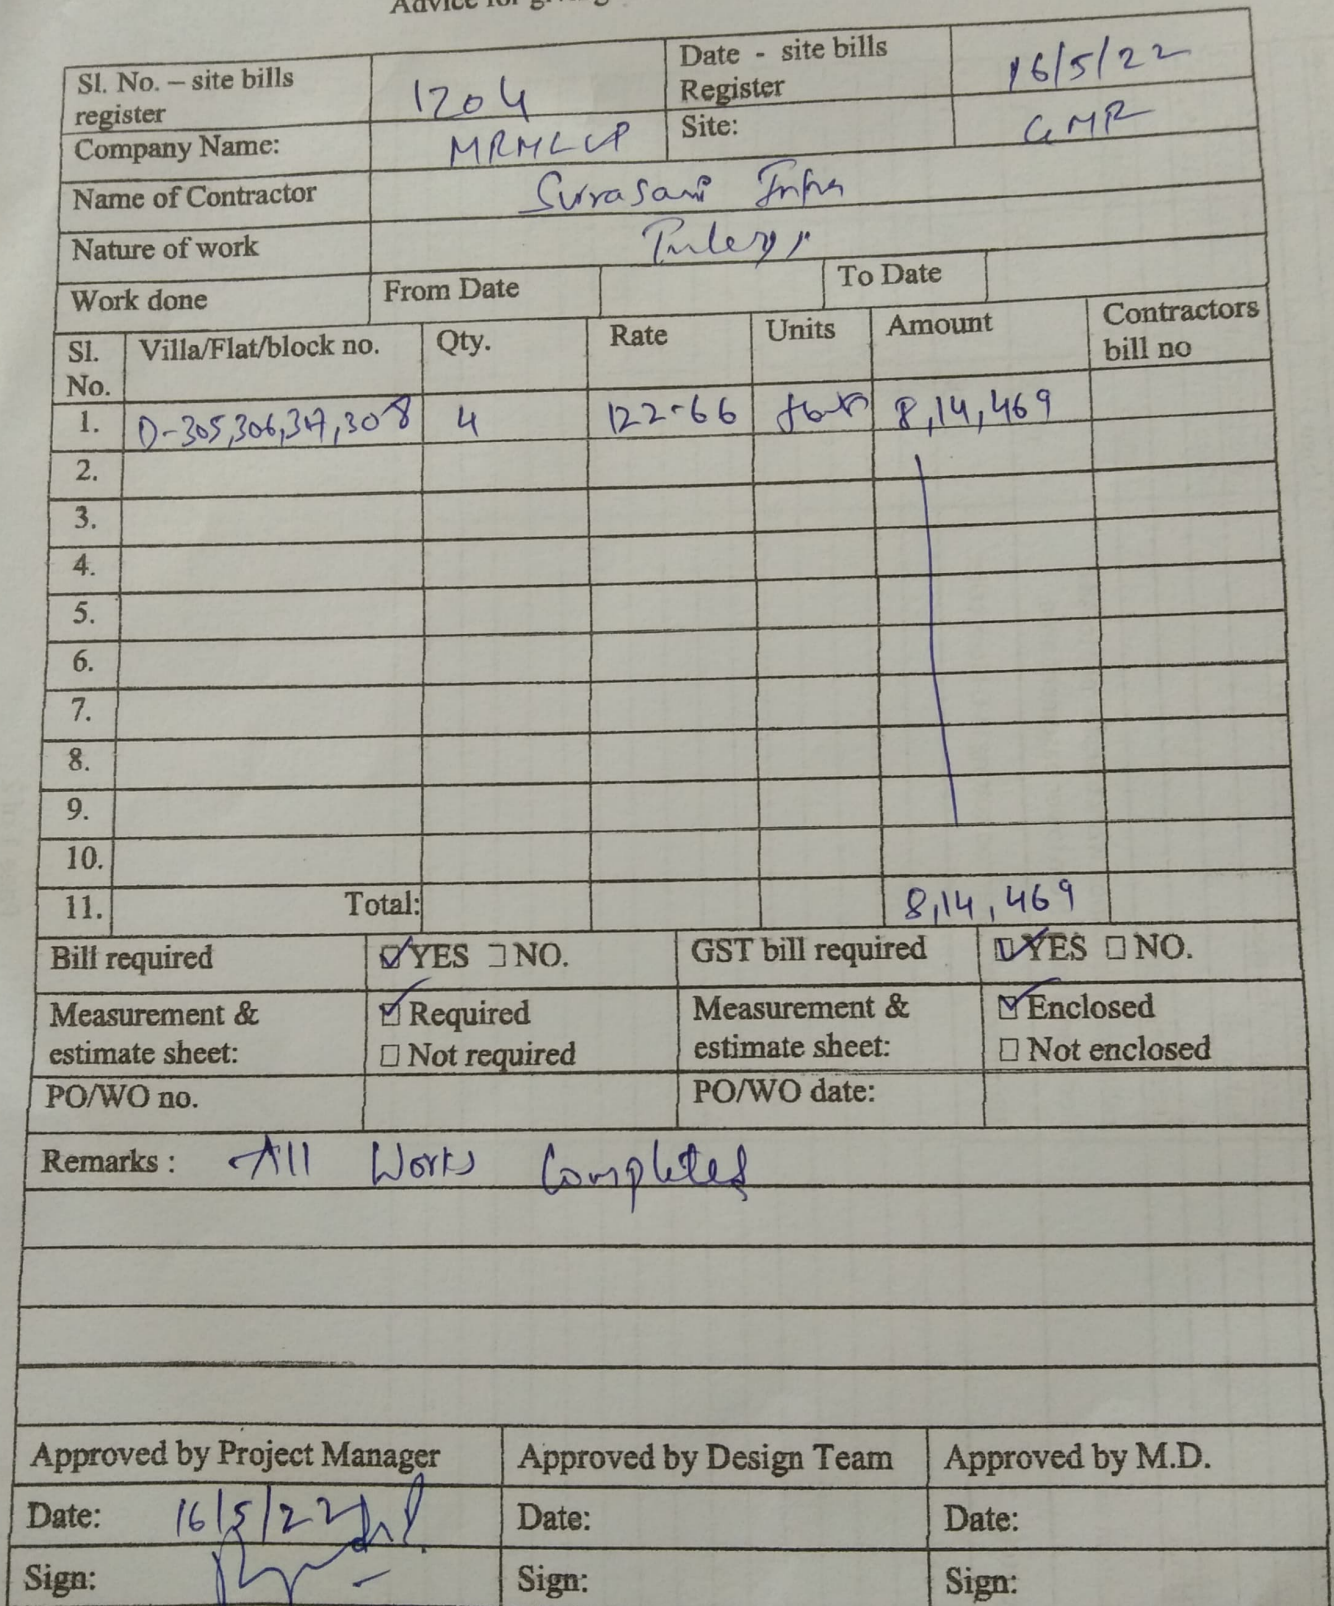 Advice for
Sl. No. – site bills register 1204 Date - site bills Register 16/5/22
Company Name: MRMLLP Site: GMR
Name of Contractor Surasani Infra
Nature of work
Work done From Date To Date
Sl. No. Villa/Flat/block no. Qty. Rate Units Amount Contractors bill no
1. D-305,306,307,308 4 122-66 8,14,469
2.
3.
4.
5.
6.
7.
8.
9.
10.
11. Total: 8,14,469
Bill required YES NO. GST bill required YES NO.
Measurement & estimate sheet: Required Not required Measurement & estimate sheet: Enclosed Not enclosed
PO/WO no. PO/WO date:
Remarks : All Works Completed
Approved by Project Manager Approved by Design Team Approved by M.D.
Date: 16/5/22 Date: Date:
Sign: Sign: Sign: